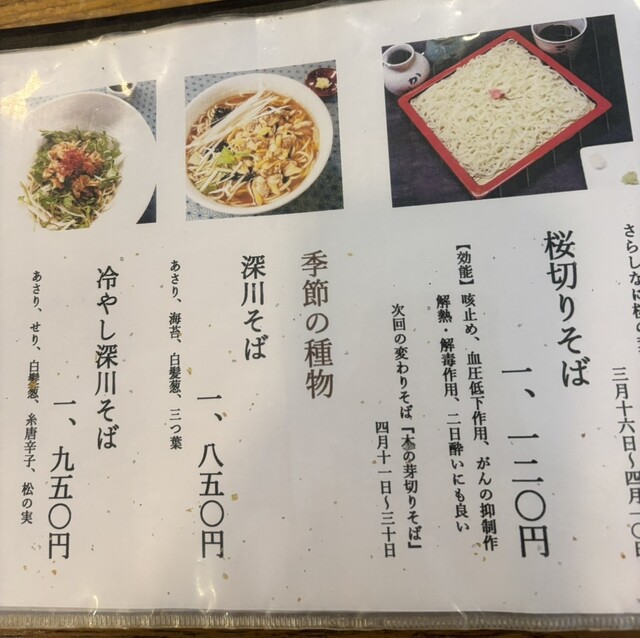 さらしなに桜の
三月十六日～四月一〇日
桜切りそば
一、一二〇円
【効能】咳止め、血圧低下作用、がんの抑制作
解熱・解毒作用、二日酔いにも良い
次回の変わりそば『木の芽切りそば』
四月十一日～三十日
季節の種物
深川そば
一、八五〇円
あさり、海苔、白髪葱、三つ葉
冷やし深川そば
一、九五〇円
あさり、せり、白髪葱、糸唐辛子、松の実